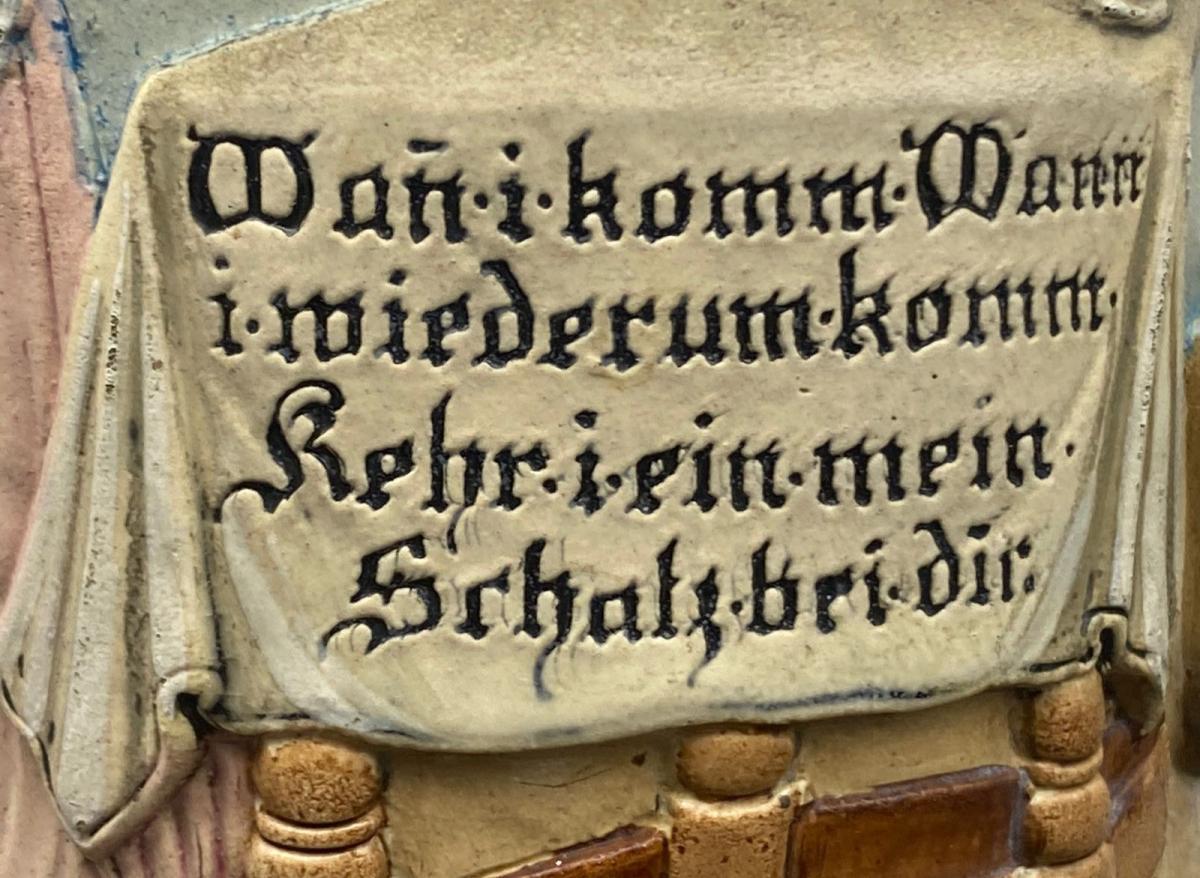 Wan̄·i·komm·Wann
i·wiederum·komm·
Kehr·i·ein·mein·
Schatz·bei·dir.